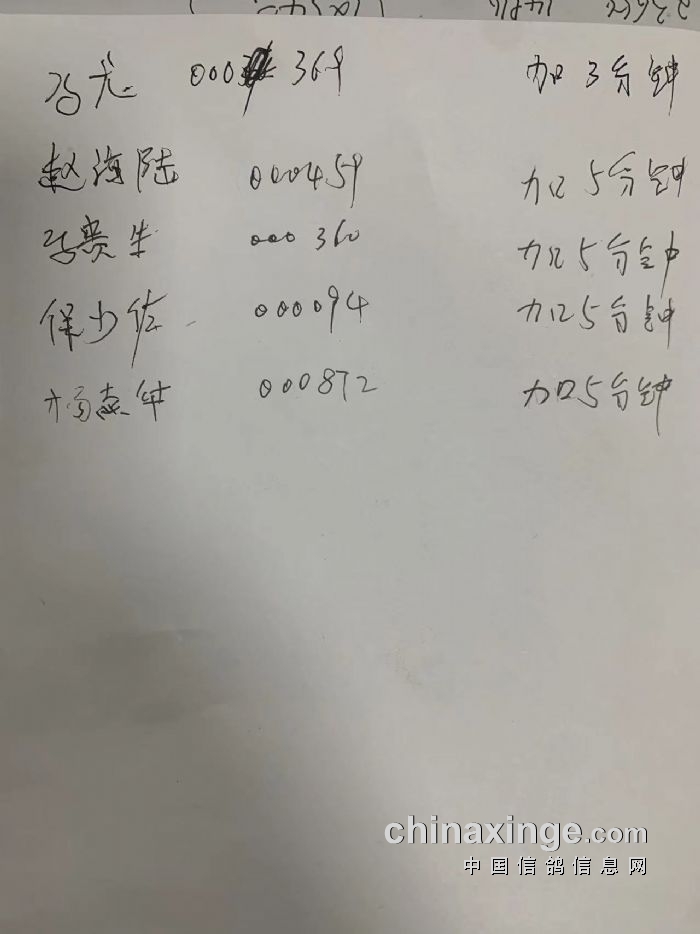 000 369 加 3 分钟
赵海陆 000459 加 5 分钟
000360 加 5 分钟
保少华 000094 加 5 分钟
杨 000872 加 5 分钟
chinaxinge.com
中国信鸽信息网